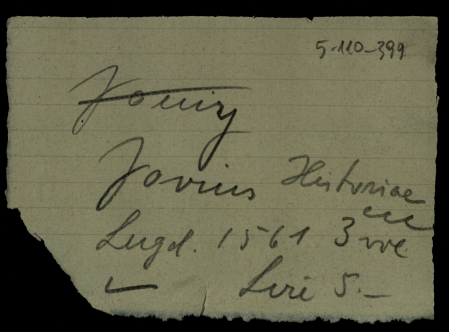 5-110-399
Jovius Historiae
Lugd. 1561 3 vol
Lire 5.—